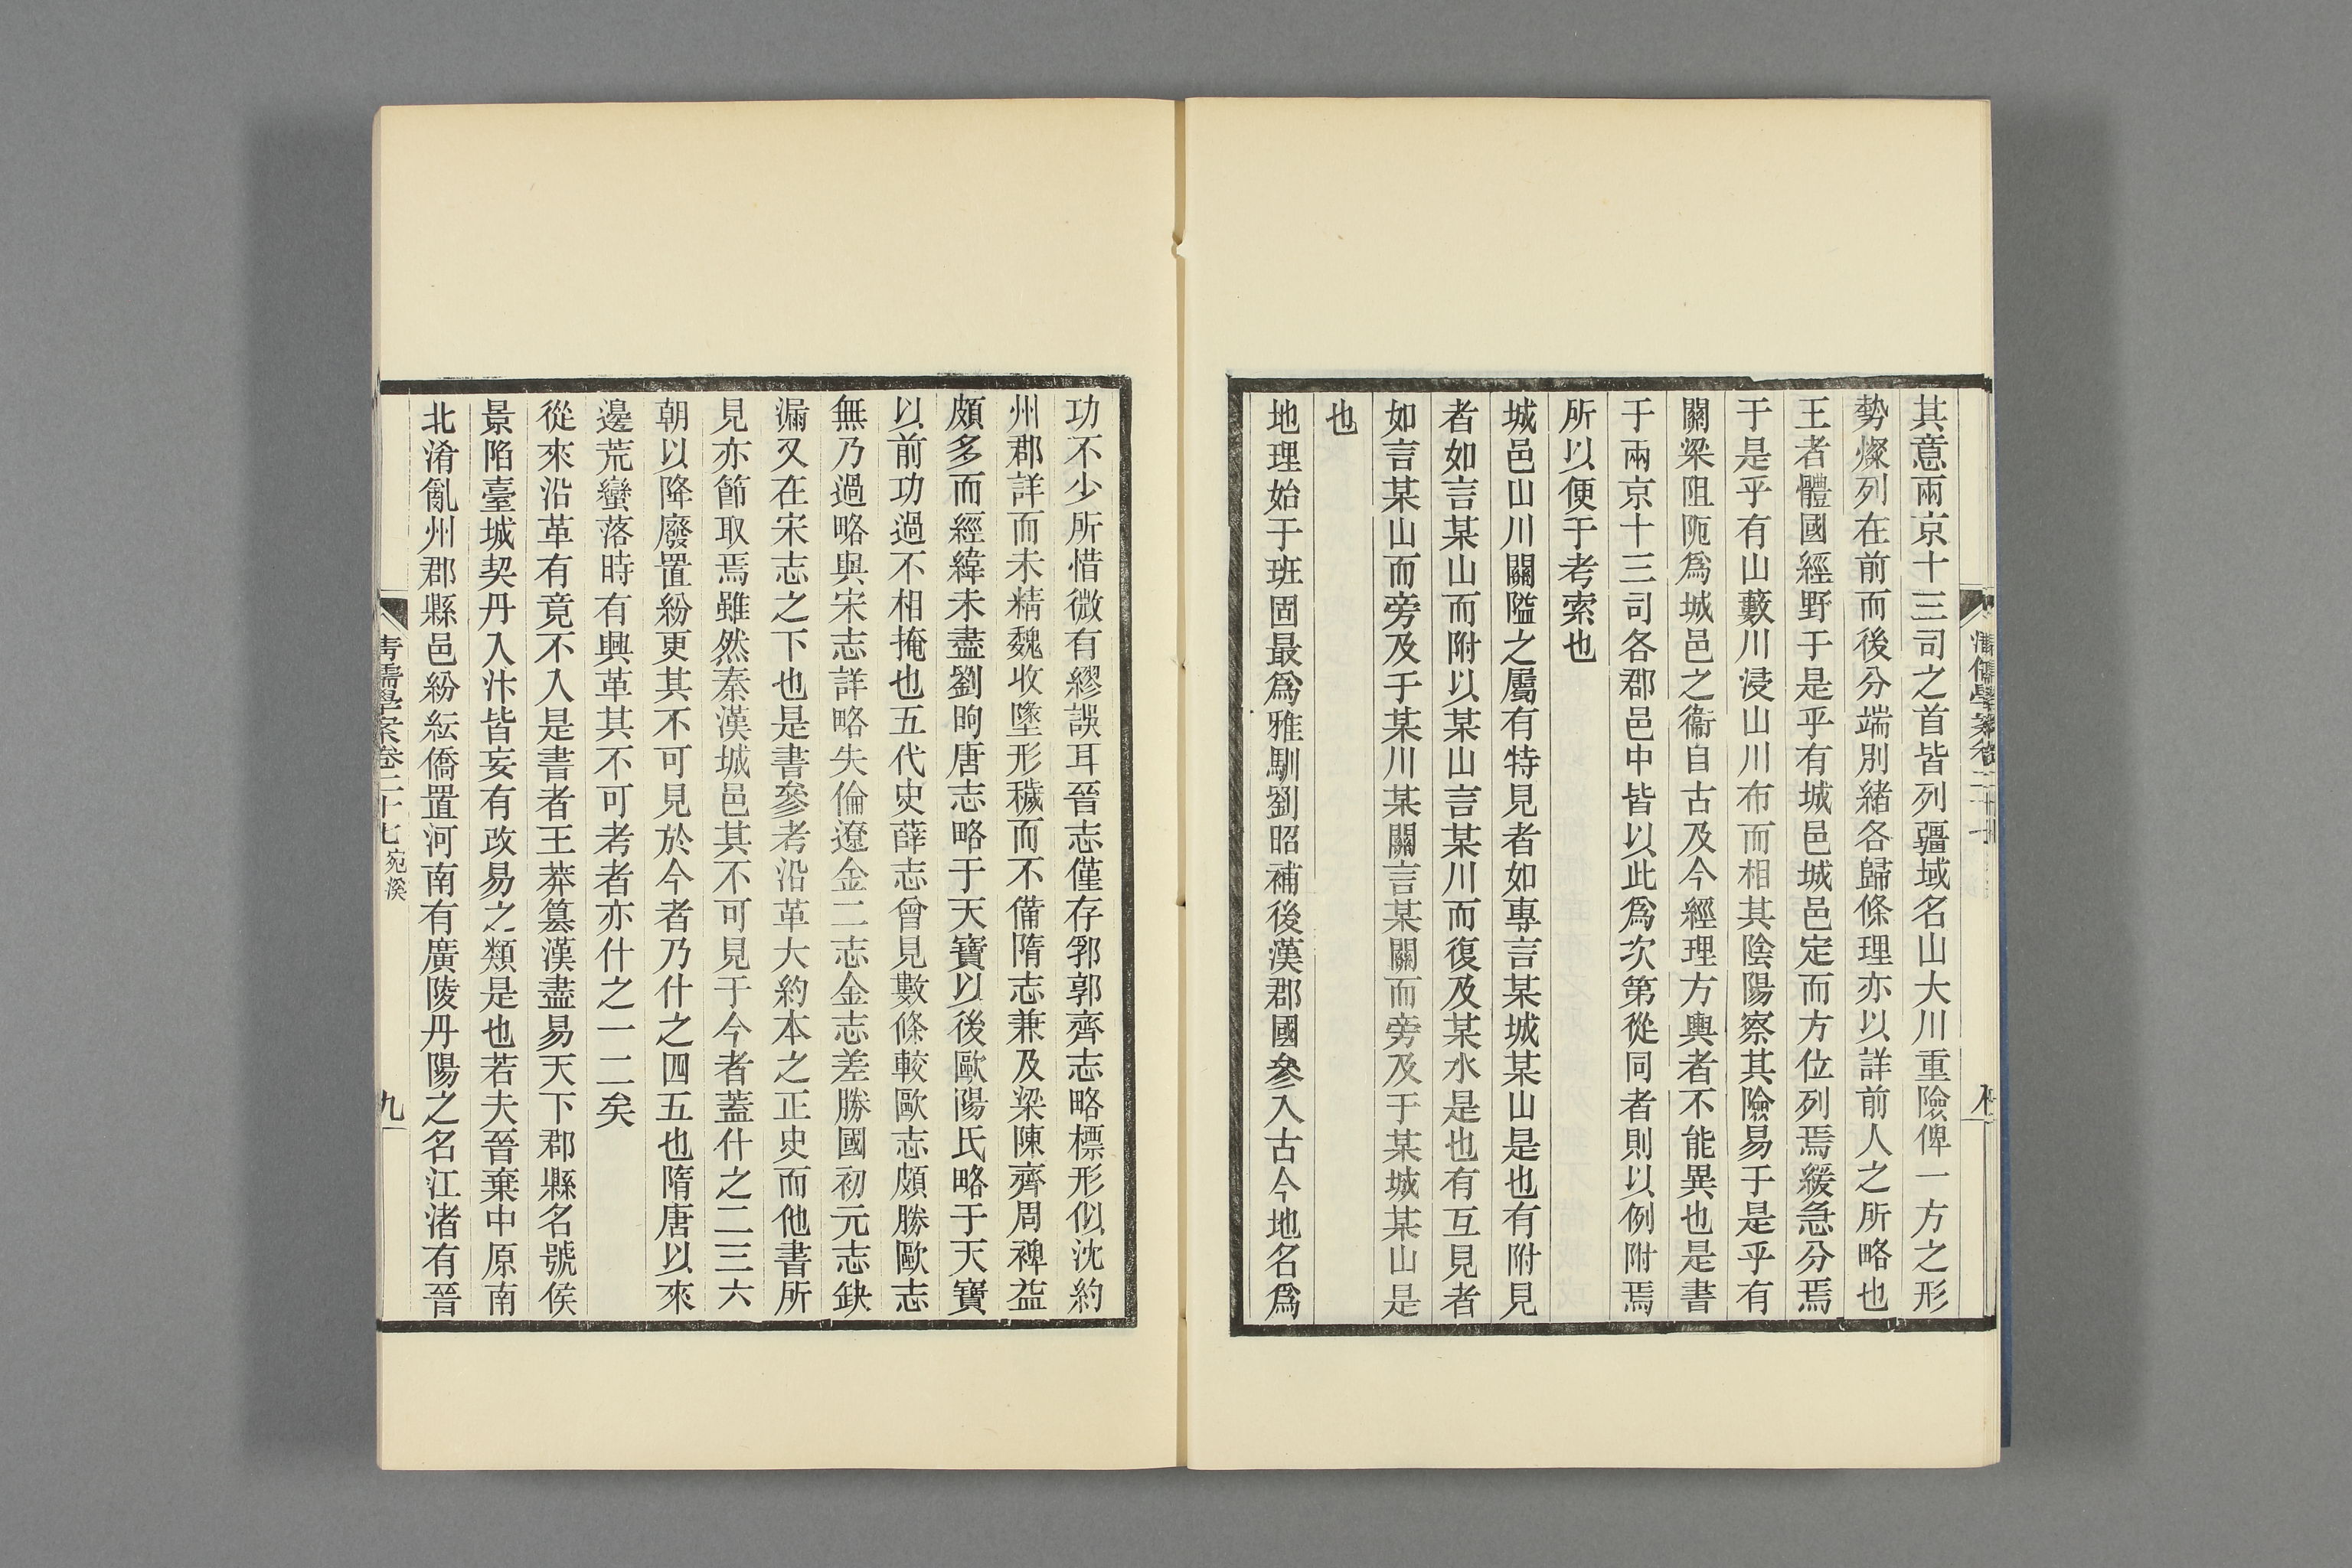 其意兩京十三司之首皆列疆域名山大川重險俾一方之形
勢燦列在前而後分端別緒各歸條理亦以詳前人之所略也
王者體國經野于是乎有城邑城邑定而方位列焉緩急分焉
于是乎有山藪川浸山川布而相其陰陽察其險易于是乎有
關梁阻阨爲城邑之衞自古及今經理方輿者不能異也是書
于兩京十三司各郡邑中皆以此爲次第從同者則以例附焉
所以便于考索也
城邑山川關隘之屬有特見者如專言某城某山是也有附見
者如言某山而附以某山言某川而復及某水是也有互見者
如言某山而旁及于某川某關言某關而旁及于某城某山是
也
地理始于班固最爲雅馴劉昭補後漢郡國參入古今地名爲
功不少所惜微有繆誤耳晉志僅存郛郭齊志略標形似沈約
州郡詳而未精魏收墜形穢而不備隋志兼及梁陳齊周裨益
頗多而經緯未盡劉昫唐志略于天寶以後歐陽氏略于天寶
以前功過不相掩也五代史薛志曾見數條較歐志頗勝歐志
無乃過略與宋志詳略失倫遼金二志金志差勝國初元志缺
漏又在宋志之下也是書參考沿革大約本之正史而他書所
見亦節取焉雖然秦漢城邑其不可見于今者蓋什之二三六
朝以降廢置紛更其不可見於今者乃什之四五也隋唐以來
邊荒蠻落時有興革其不可考者亦什之一二矣
從來沿革有竟不入是書者王莽簒漢盡易天下郡縣名號侯
景陷臺城契丹入汴皆妄有改易之類是也若夫晉棄中原南
北淆亂州郡縣邑紛紜僑置河南有廣陵丹陽之名江渚有晉
清儒學案卷二十七 宛溪
九